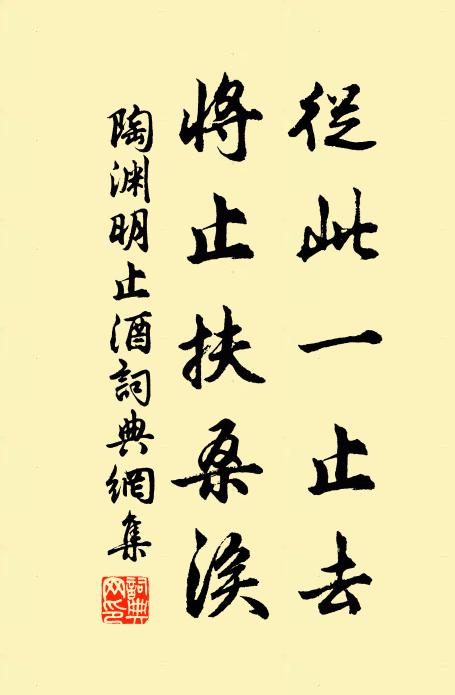 從此一止去
將止扶桑涘
陶渊明止酒詞典網集
詞典